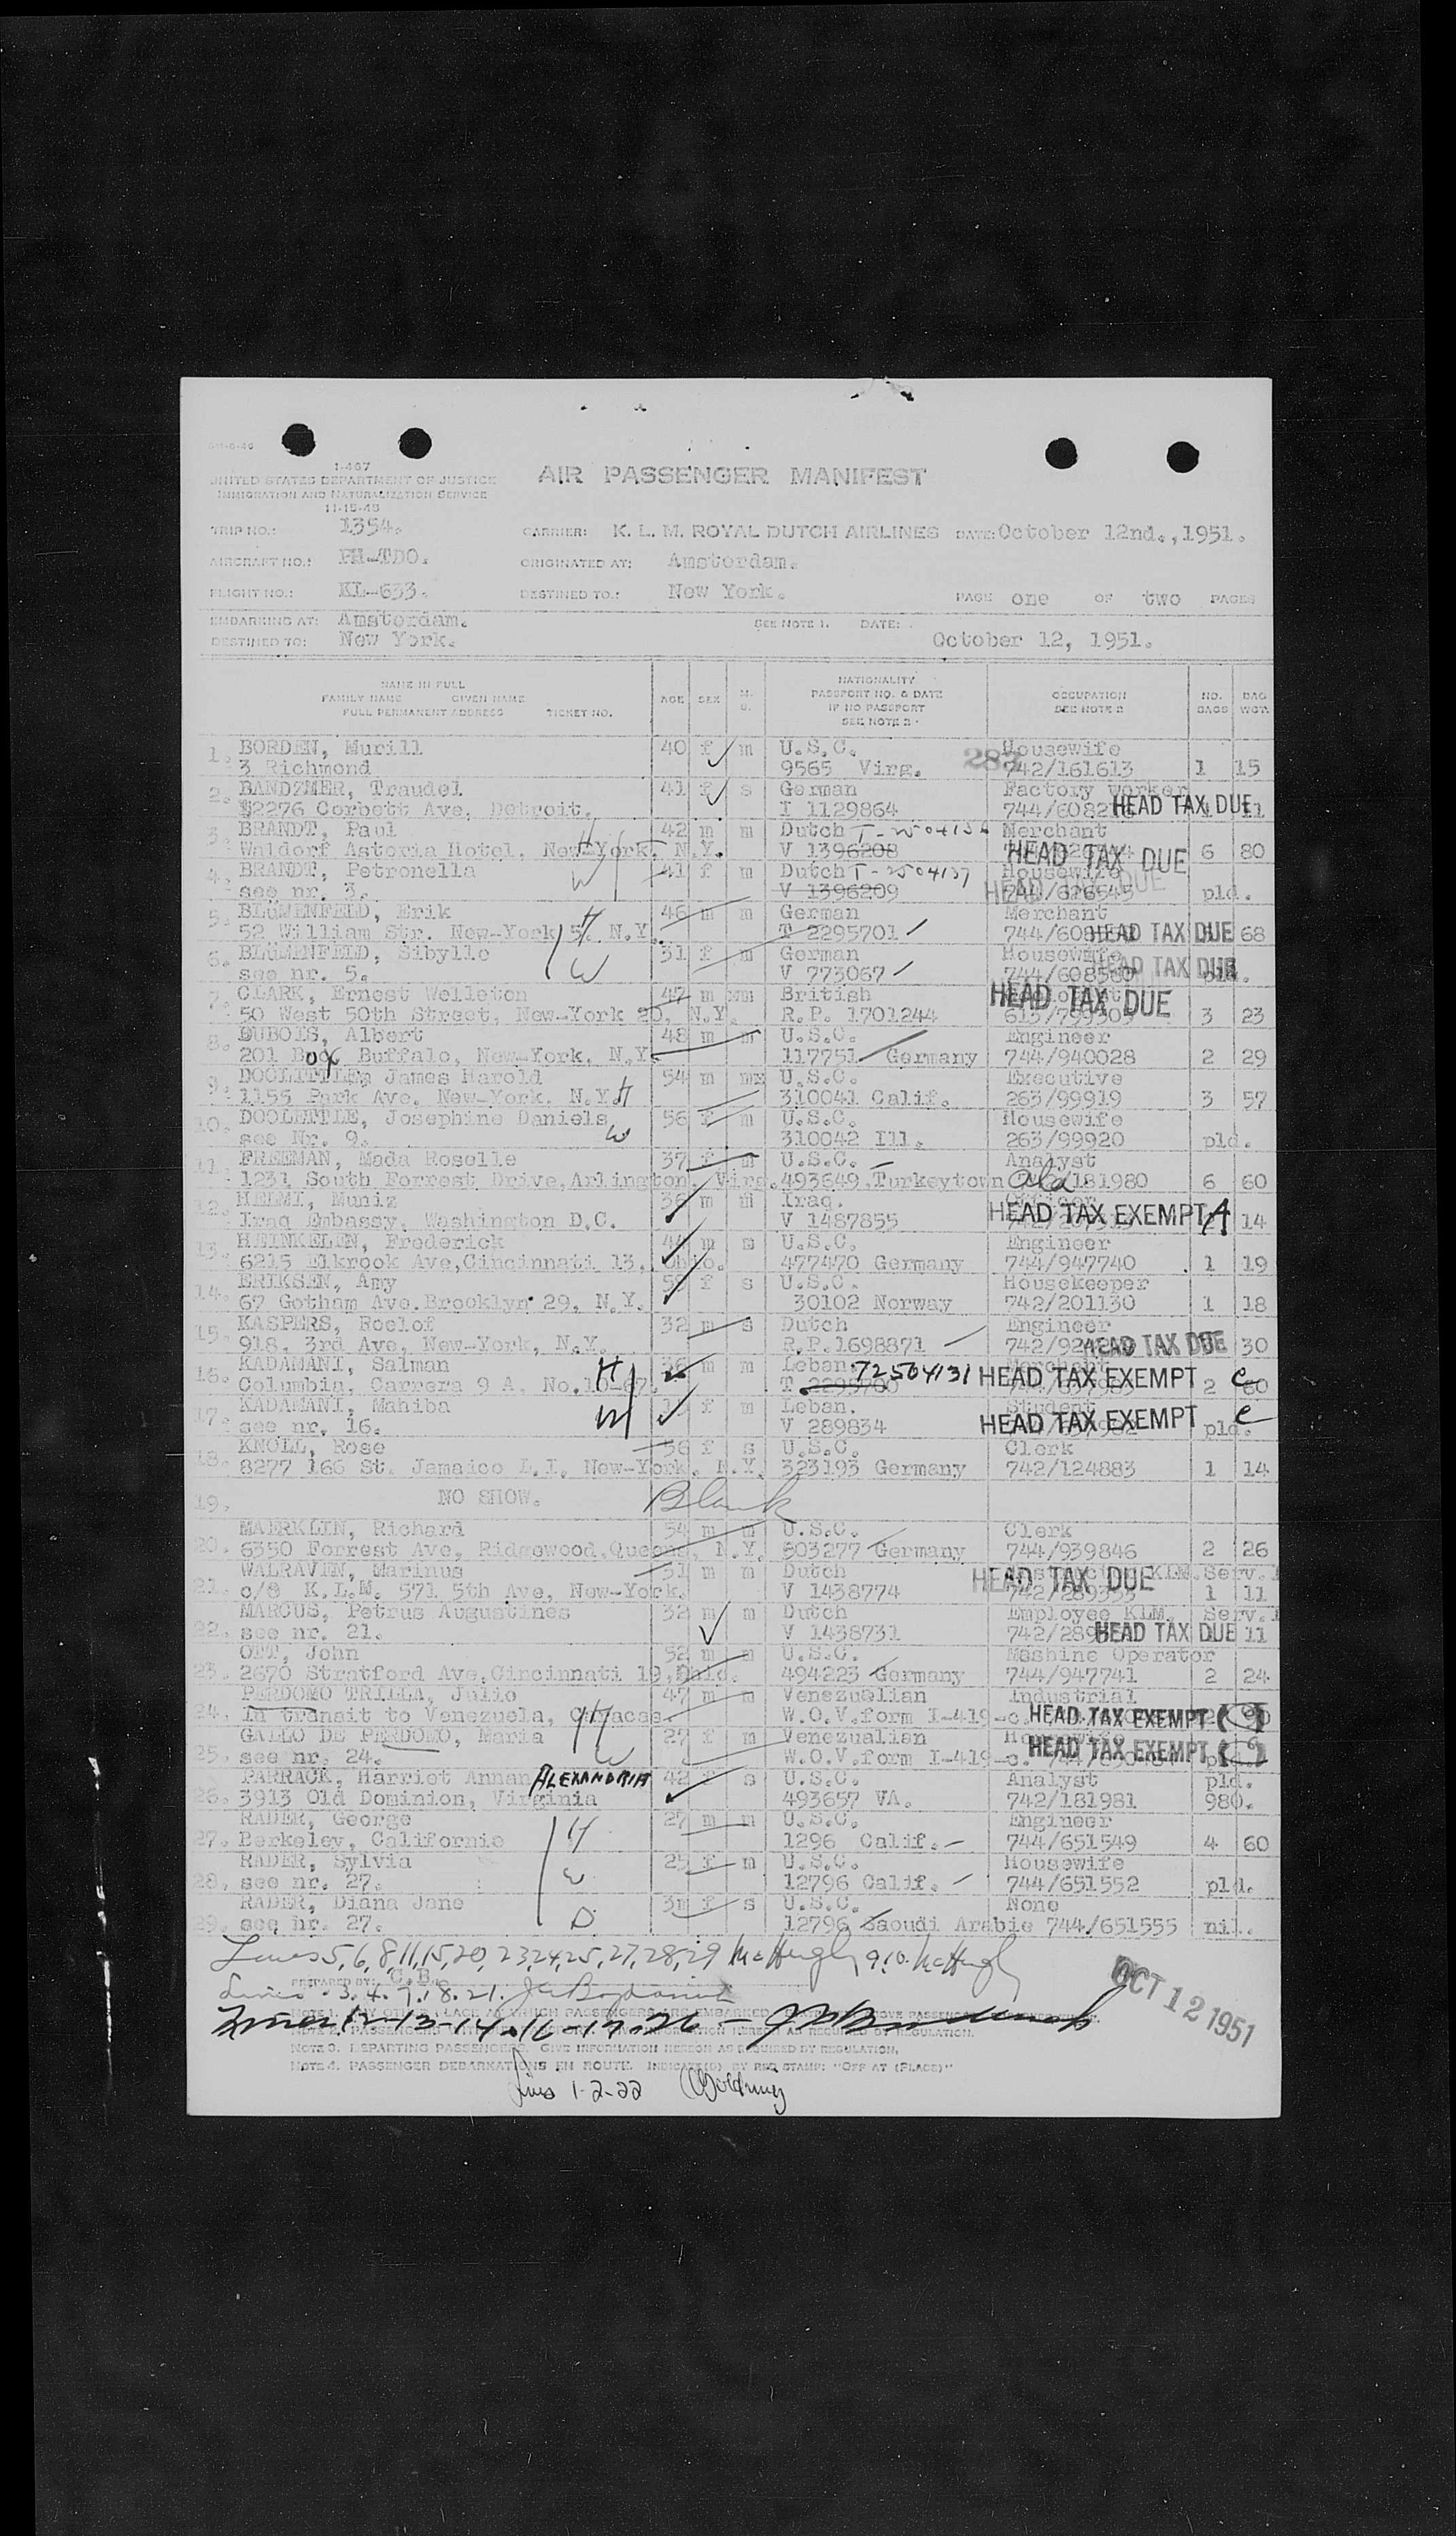 I-467
UNITED STATES DEPARTMENT OF JUSTICE
IMMIGRATION AND NATURALIZATION SERVICE
11-15-45
AIR PASSENGER MANIFEST
TRIP NO.: 1354. CARRIER: K. L. M. ROYAL DUTCH AIRLINES DATE: October 12nd.,1951.
AIRCRAFT NO.: PH-TDO. ORIGINATED AT: Amsterdam.
FLIGHT NO.: KL-633. DESTINED TO.: New York. PAGE one OF two PAGES
EMBARKING AT: Amsterdam. SEE NOTE 1. DATE:
DESTINED TO: New York. October 12, 1951.
NAME IN FULL
FAMILY NAME GIVEN NAME
FULL PERMANENT ADDRESS TICKET NO.
AGE SEX M. S.
NATIONALITY
PASSPORT NO. & DATE
IF NO PASSPORT
SEE NOTE 2
OCCUPATION
SEE NOTE 2
NO. BAGS BAG WGT.
1. BORDEN, Murill 40 f m U.S.C. Housewife
3 Richmond 9565 Virg. 283 742/161613 1 15
2. BANDZMER, Traudel 41 f s German Factory worker
2276 Corbett Ave, Detroit. I 1129864 HEAD TAX DUE 11
3. BRANDT, Paul 42 m m Dutch Merchant
Waldorf Astoria Hotel, New-York, N.Y. H V 1396208 HEAD TAX DUE 6 80
4. BRANDT, Petronella 41 f m Dutch T-2504137 Housewife
see nr. 3. W V 1396209 HEAD TAX DUE 744/626545 pld.
5. BLüMENFELD, Erik H 46 m m German Merchant
52 William Str. New-York 5, N.Y. T 2295701 HEAD TAX DUE 68
6. BLüMENFELD, Sibylle 31 f m German Housewife
see nr. 5. W V 773067 744/608580 HEAD TAX DUE pld.
7. CLARK, Ernest Welleton 47 m m British
50 West 50th Street, New-York 20, N.Y. R.P. 1701244 HEAD TAX DUE 3 23
8. DUBOIS, Albert 48 m m U.S.C. Engineer
201 Buffalo, New-York, N.Y. 117751 Germany 744/940028 2 29
9. DOOLITTLE, James Harold 54 m U.S.C. Executive
1155 Park Ave, New-York. N.Y. H 310041 Calif. 263/99919 3 57
10. DOOLETTLE, Josephine Daniels 56 f m U.S.C. Housewife
see Nr. 9. W 310042 Ill. 263/99920 pld.
11. FREEMAN, Mada Roselle 37 f m U.S.C. Analyst
1231 South Forrest Drive, Arlington, Virg. 493649, Turkeytown 181980 6 60
12. HELMI, Muniz 36 m m Iraq.
Iraq Embassy, Washington D.C. V 1487855 HEAD TAX EXEMPT A 14
13. HEINKELEN, Frederick 44 m m U.S.C. Engineer
6215 Elkrook Ave,Cincinnati 13, Ohio. 477470 Germany 744/947740 1 19
14. ERIKSEN, Amy f s U.S.C. Housekeeper
67 Gotham Ave. Brooklyn 29, N.Y. 30102 Norway 742/201130 1 18
15. KASPERS, Roelof 32 m s Dutch Engineer
918, 3rd Ave, New-York, N.Y. R.P. 1698871 HEAD TAX DUE 30
16. KADAMANI, Salman H 36 m m Leban. 72504131
Columbia, Carrera 9 A, No.10-67. HEAD TAX EXEMPT C 2 60
17. KADAMANI, Mahiba f m Leban. Student
see nr. 16. W V 289834 HEAD TAX EXEMPT C pld.
18. KNOLL, Rose 56 f s U.S.C. Clerk
8277 166 St. Jamaico L.I, New-York, N.Y. 323193 Germany 742/124883 1 14
19. NO SHOW. Blank
20. MAERKLIN, Richard 54 m m U.S.C. Clerk
6350 Forrest Ave, Ridgewood,Queens, N.Y. 503277 Germany 744/939846 2 26
21. WALRAVEN, Marinus 31 m m Dutch KLM. Serv.
c/o K.L.M. 571 5th Ave, New-York. V 1438774 HEAD TAX DUE 1 11
22. MARCUS, Petrus Augustines 32 m m Dutch Employee KLM. Serv.
see nr. 21. V 1438731 HEAD TAX DUE 11
23. OTT, John 52 m m U.S.C. Mashine Operator
2670 Stratford Ave,Cincinnati 19, 494223 Germany 744/947741 2 24
24. PERDOMO TRILLA, Julio 47 m m Venezuelian Industrial
In transit to Venezuela, Caracas. H W.O.V.form I-419-c. HEAD TAX EXEMPT
25. GALLO DE PERDOMO, Maria 27 f m Venezualian
see nr. 24. W W.O.V.form I-419-c. HEAD TAX EXEMPT
26. PARRACK, Harriet Annan ALEXANDRIA 42 f s U.S.C. Analyst pld.
3913 Old Dominion, Virginia 493657 VA. 742/181981 980.
27. RADER, George H 27 m m U.S.C. Engineer
Berkeley, Californie 1296 Calif. 744/651549 4 60
28. RADER, Sylvia 25 f m U.S.C. Housewife
see nr. 27. W 12796 Calif. 744/651552 pld.
29. RADER, Diana Jane 3m f s U.S.C. None
see nr. 27. D 12796 Saoudi Arabie 744/651555 nil.
Lines 5,6,8,11,15,20, 23,24,25,27,28,29 McHugh 9,10. McHugh
PREPARED BY: C.B.
Lines 3. 4. 7. 18. 21.
OCT 12 1951
Lines 12-13-14-16-17-26
NOTE 3. DEPARTING PASSENGERS. GIVE INFORMATION HEREON AS REQUIRED BY REGULATION.
NOTE 4. PASSENGER DEBARKATIONS EN ROUTE. INDICATE(D) BY RED STAMP: "OFF AT (PLACE)"
Lines 1-2-22